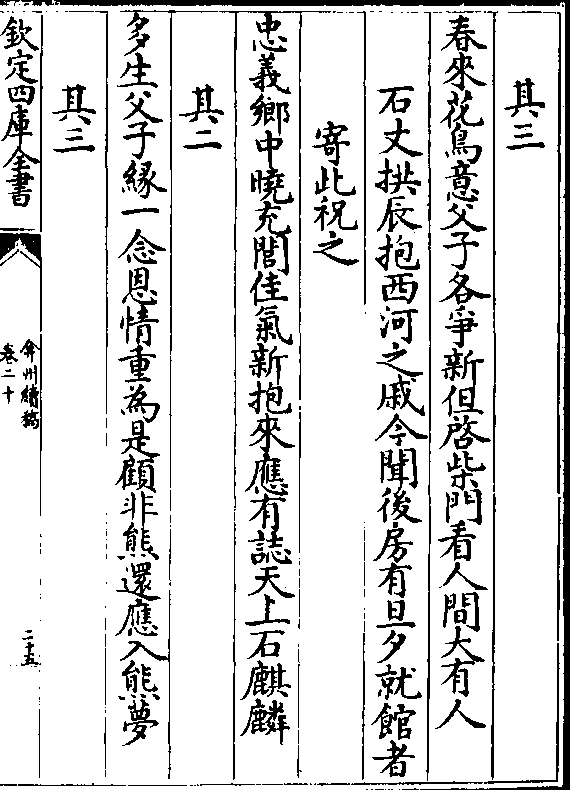 其三
春來花鳥意父子各爭新但啓柴門看人間大有人
石丈拱辰抱西河之戚今聞後房有旦夕就館者
寄此祝之
忠義鄉中曉充閭佳氣新抱來應有誌天上石麒麟
其二
多生父子緣一念恩情重為是顧非熊還應入熊夢
其三
欽定四庫全書
弇州續稿
卷二十
二十五